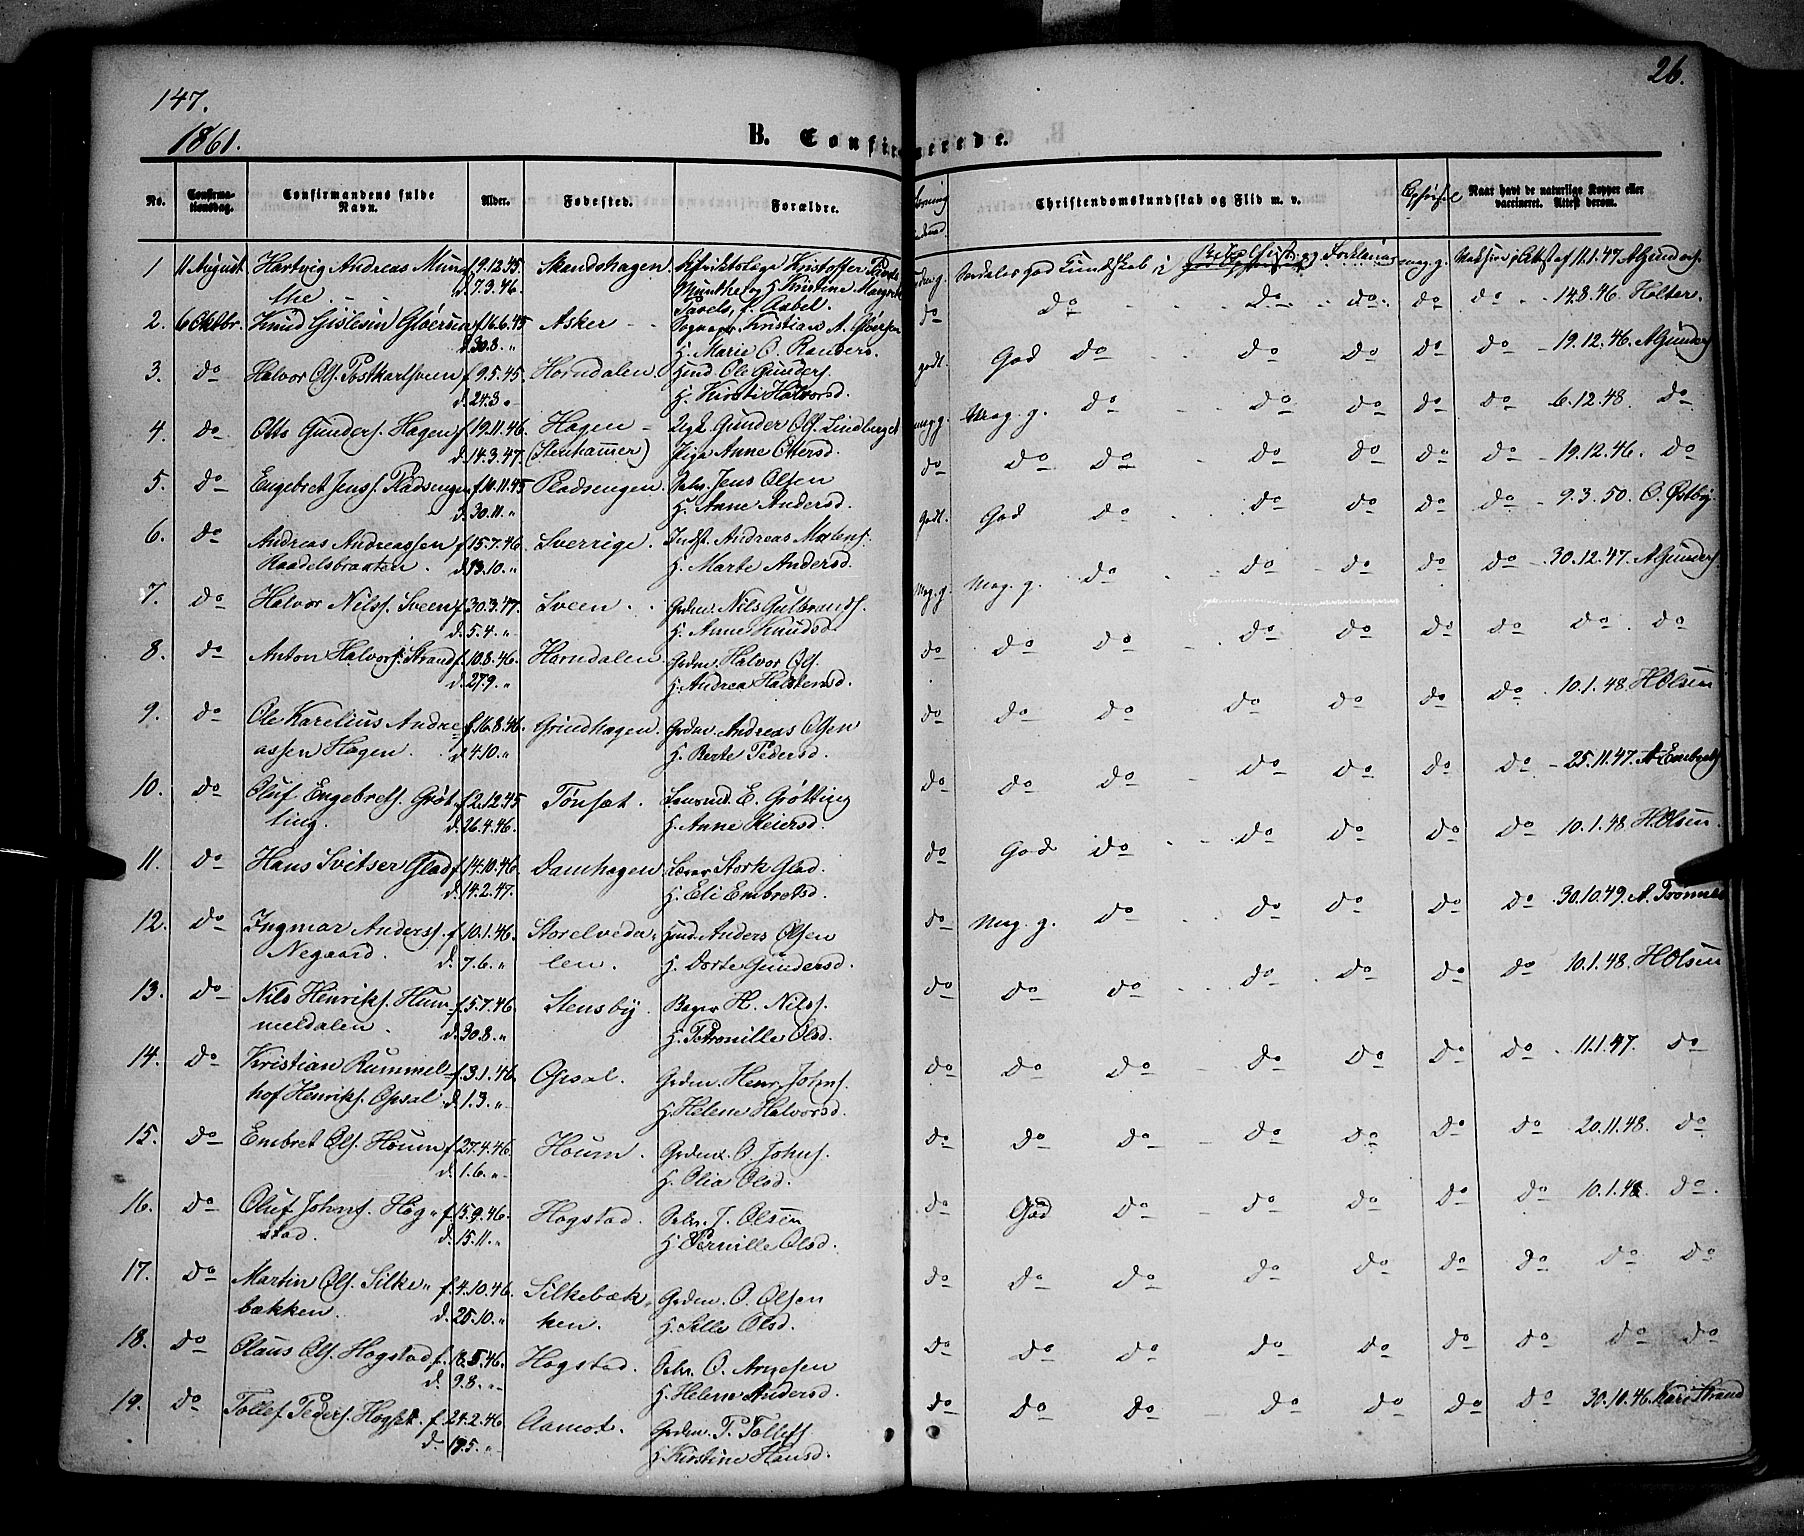 147.
26.
1861.
B. Confirmerede.
No.
Confirma-
tionsdag.
Confirmandens fulde
Navn.
Alder.
Fødested.
Forældre.
Christendomskundskab og Flid m. v.
Opførsel
Naar havt de naturlige Kopper eller
vaccineret. Attest derom.
1 11 August Hartvig Andreas Mun f. 9.12.45 Skandshagen. Kristoffer
the d. 7.3.46. Munthe og H. Kristine Margrete
mg. g. 11.1.47 AGunders.
2. 6 Oktbr. Knud Gislesen Gløersen f. 16.6.45 Asker Kristian A. Gløersen
d. 30.8. „ H. Marie C. Randers.
do do do do do do 14.8.46 Holter.
3. do Halvor Ols. f. 9.5.45. Horndalen. Huusd. Ole Gunders.
d. 24.3 „ H. Kirsti Halvorsd.
godt. God do do do do do 19.12.46. AGunders
4. do Otto Gunders. Hagen f. 19.11.46. Hagen Gunder Ols. Lindberget
d. 14.3.47. (Stenhammer) Pige Anne Ottersd.
meg g. Meg. g. do do do do do 6.12.48. do
5. do Engebret Jens. Pladsengen f. 10.11.45 Pladsengen. Jens Olsen
d. 30.11. „ H. Anne Andersd.
do do do do do do do 19.12.46. do
6. do Andreas Andreassen f. 15.7.46. Sverrige. Indst. Andreas
Haadelsbraaten. d. 13.10. „ H. Marte Andersd.
Godt. God do do do do do 9.3.50. O. Østby.
7. do Halvor Nilss. Sveen f. 30.3.47. Sveen. Grdm. Nils Gulbrands.
d. 5.4. „ H. Anne Knudsd.
Meg. g Meg. g. do do do do do 30.12.47. AGunders.
8. do Anton Halvors. Strand f. 10.8.46. Horndalen Grdm. Halvor Ols.
d. 27.9. „ H. Andrea Halstensd.
do do do do do do do do do
9. do Ole Karelius Andre- f. 16.8.46. Grindhagen. Grdm. Andreas Olsen
assen Hagen. d. 4.10. „ H. Berte Pedersd.
do do do do do do do 10.1.48. HOlsen
10. do Oluf Engebrets. Grøt f. 2.12.45 Tønset. Lensmd. E. Grøtting
ting. d. 26.4.46. H. Anne Reiersd.
do do do do do do do 25.11.47. A. Embrets.
11. do Hans Svitser Glad f. 14.10.46. Damhagen Lærer Stork Glad.
d. 14.2.47. H. Eli Embretsd.
do God do do do do do 10.1.48. HOlsen.
12. do Ingmar Anderss. f. 10.1.46. Storelveda- Huusd. Anders Olsen
Negaard. d. 7.6. „ len. H. Dorte Gundersd.
do Meg. g. do do do do do 30.10.49. A.
13. do Nils Henriks. Hum- f. 5.7.46. Stensby. Bager H. Nilss.
meldalen. d. 30.8. „ H. Petronille Olsd.
do do do do do do do 10.1.48. HOlsen
14. do Kristian Rummel- f. 3.1.46. Opsal. Grdm. Henr. Johns.
hof Henriks. Opsal. d. 1.3. „ H. Helene Halvorsd.
do do do do do do do 11.1.47. do
15. do Embret Ols. Houm f. 27.4.46. Houm. Grdm. O. Johns.
d. 1.6. „ H. Olia Olsd.
do do do do do do do 20.11.48. do
16. do Oluf Johns. Hog- f. 15.9.46. Hogstad. J. Olsen
stad. d. 15.11. „ H. Pernille Olsd.
do God do do do do do 10.1.48 do.
17. do Martin Ols. Silke- f. 4.10.46. Silkebæk- Grdm. O. Olsen
bækken. d. 25.10. „ ken. H. Sille Olsd.
do do do do do do do do do
18. do Olaus Ols. Hogstad f. 18.5.46. Hogstad. O. Arnesen
d. 9.8. „ H. Helene Andersd.
do do do do do do do do do
19. do Tollef Peders. f. 21.2.46 Aamot. Grdm. P. Tollefs.
d. 19.5. „ H. Kirstine Hansd.
do do do do do do do 30.10.46. Kari Strand